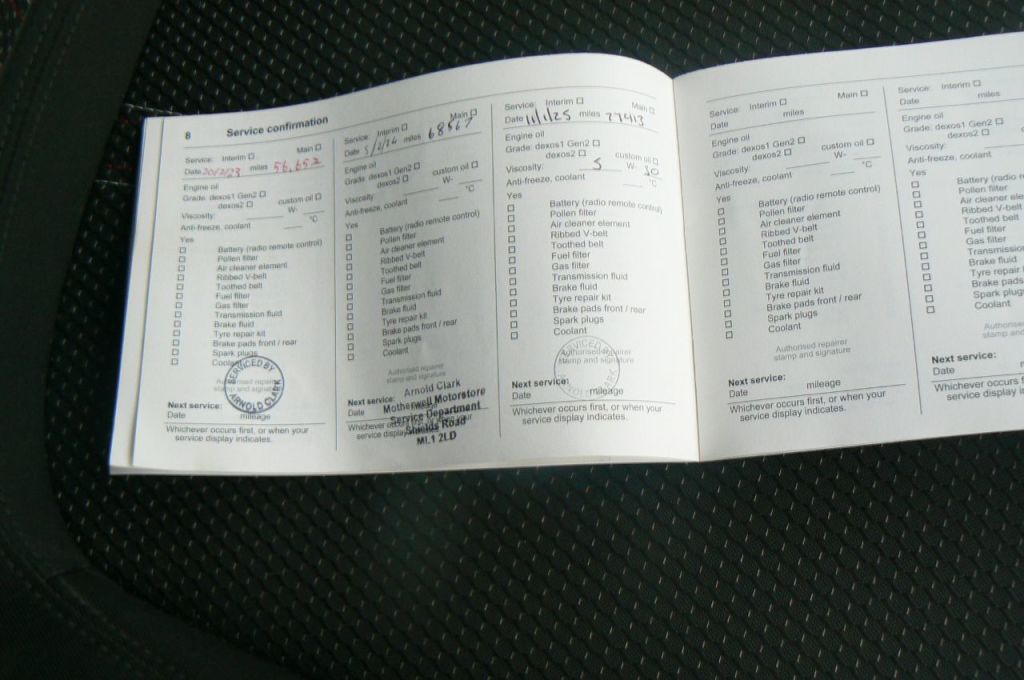 8 Service confirmation
Service: Interim Main
Date 20/2/23 miles 56,652
Engine oil
Grade: dexos1 Gen2
dexos2 custom oil
Viscosity: W-
Anti-freeze, coolant °C
Yes
Battery (radio remote control)
Pollen filter
Air cleaner element
Ribbed V-belt
Toothed belt
Fuel filter
Gas filter
Transmission fluid
Brake fluid
Tyre repair kit
Brake pads front / rear
Spark plugs
Coolant
Authorised repairer
stamp and signature
SERVICED BY
ARNOLD CLARK
Next service:
Date mileage
Whichever occurs first, or when your
service display indicates.
Service: Interim Main
Date 5/2/24 miles 68567
Engine oil
Grade: dexos1 Gen2
dexos2 custom oil
Viscosity W-
Anti-freeze, coolant °C
Yes
Battery (radio remote control)
Pollen filter
Air cleaner element
Ribbed V-belt
Toothed belt
Fuel filter
Gas filter
Transmission fluid
Brake fluid
Tyre repair kit
Brake pads front / rear
Spark plugs
Coolant
Authorised repairer
stamp and signature
Next service:
Date
Whichever occurs first, or when your
service display indicates.
Arnold Clark
Motherwell Motorstore
Service Department
Shields Road
ML1 2LD
Service: Interim Main
Date 11/1/25 miles 77413
Engine oil
Grade: dexos1 Gen2
dexos2 custom oil
Viscosity: 5 W- 30
Anti-freeze, coolant °C
Yes
Battery (radio remote control)
Pollen filter
Air cleaner element
Ribbed V-belt
Toothed belt
Fuel filter
Gas filter
Transmission fluid
Brake fluid
Tyre repair kit
Brake pads front / rear
Spark plugs
Coolant
Authorised repairer
stamp and signature
SERVICED BY
ARNOLD CLARK
Next service:
Date mileage
Whichever occurs first, or when your
service display indicates.
Service: Interim Main
Date miles
Engine oil
Grade: dexos1 Gen2
dexos2 custom oil
Viscosity: W-
Anti-freeze, coolant °C
Yes
Battery (radio remote control)
Pollen filter
Air cleaner element
Ribbed V-belt
Toothed belt
Fuel filter
Gas filter
Transmission fluid
Brake fluid
Tyre repair kit
Brake pads front / rear
Spark plugs
Coolant
Authorised repairer
stamp and signature
Next service:
Date mileage
Whichever occurs first, or when your
service display indicates.
Service: Interim
Date miles
Engine oil
Grade: dexos1 Gen2
dexos2
Viscosity:
Anti-freeze, coolant
Yes
Battery (radio re
Pollen filter
Air cleaner ele
Ribbed V-belt
Toothed belt
Fuel filter
Gas filter
Transmissio
Brake fluid
Tyre repair
Brake pads
Spark plug
Coolant
Authoris
stamp a
Next service:
Date m
Whichever occurs firs
service display in